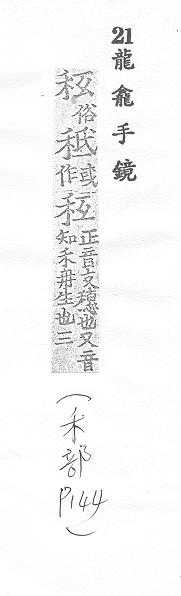 21龍龕手鏡
俗秪或作正音文穗也又音知禾再生也三
(禾部P144)